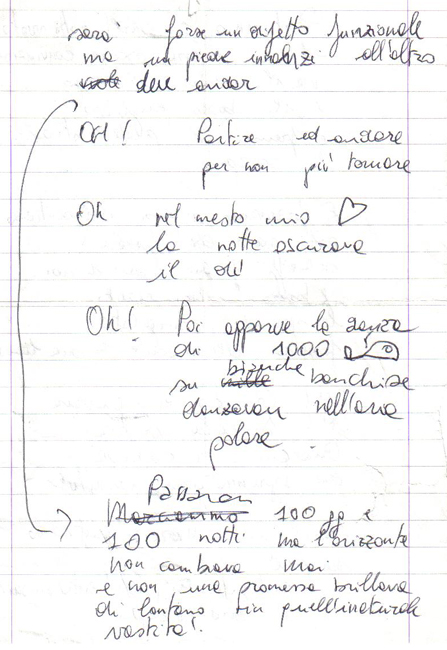 sarà forse un oggetto funzionale
ma un piede innanzi all'altro
deve andar
Oh! Partire ed andare
per non più tornare
Oh nel mesto mio ♡
la notte oscurava
il dì
Oh! Poi apparve la danza
di 1000
bianche
su mille banchise
danzavan nell'aria
polare
Passaron
100 gg e
100 notti ma l'orizzonte
non cambiava mai
e non una promessa brillava
di lontano tra quell'innaturale
vastità!